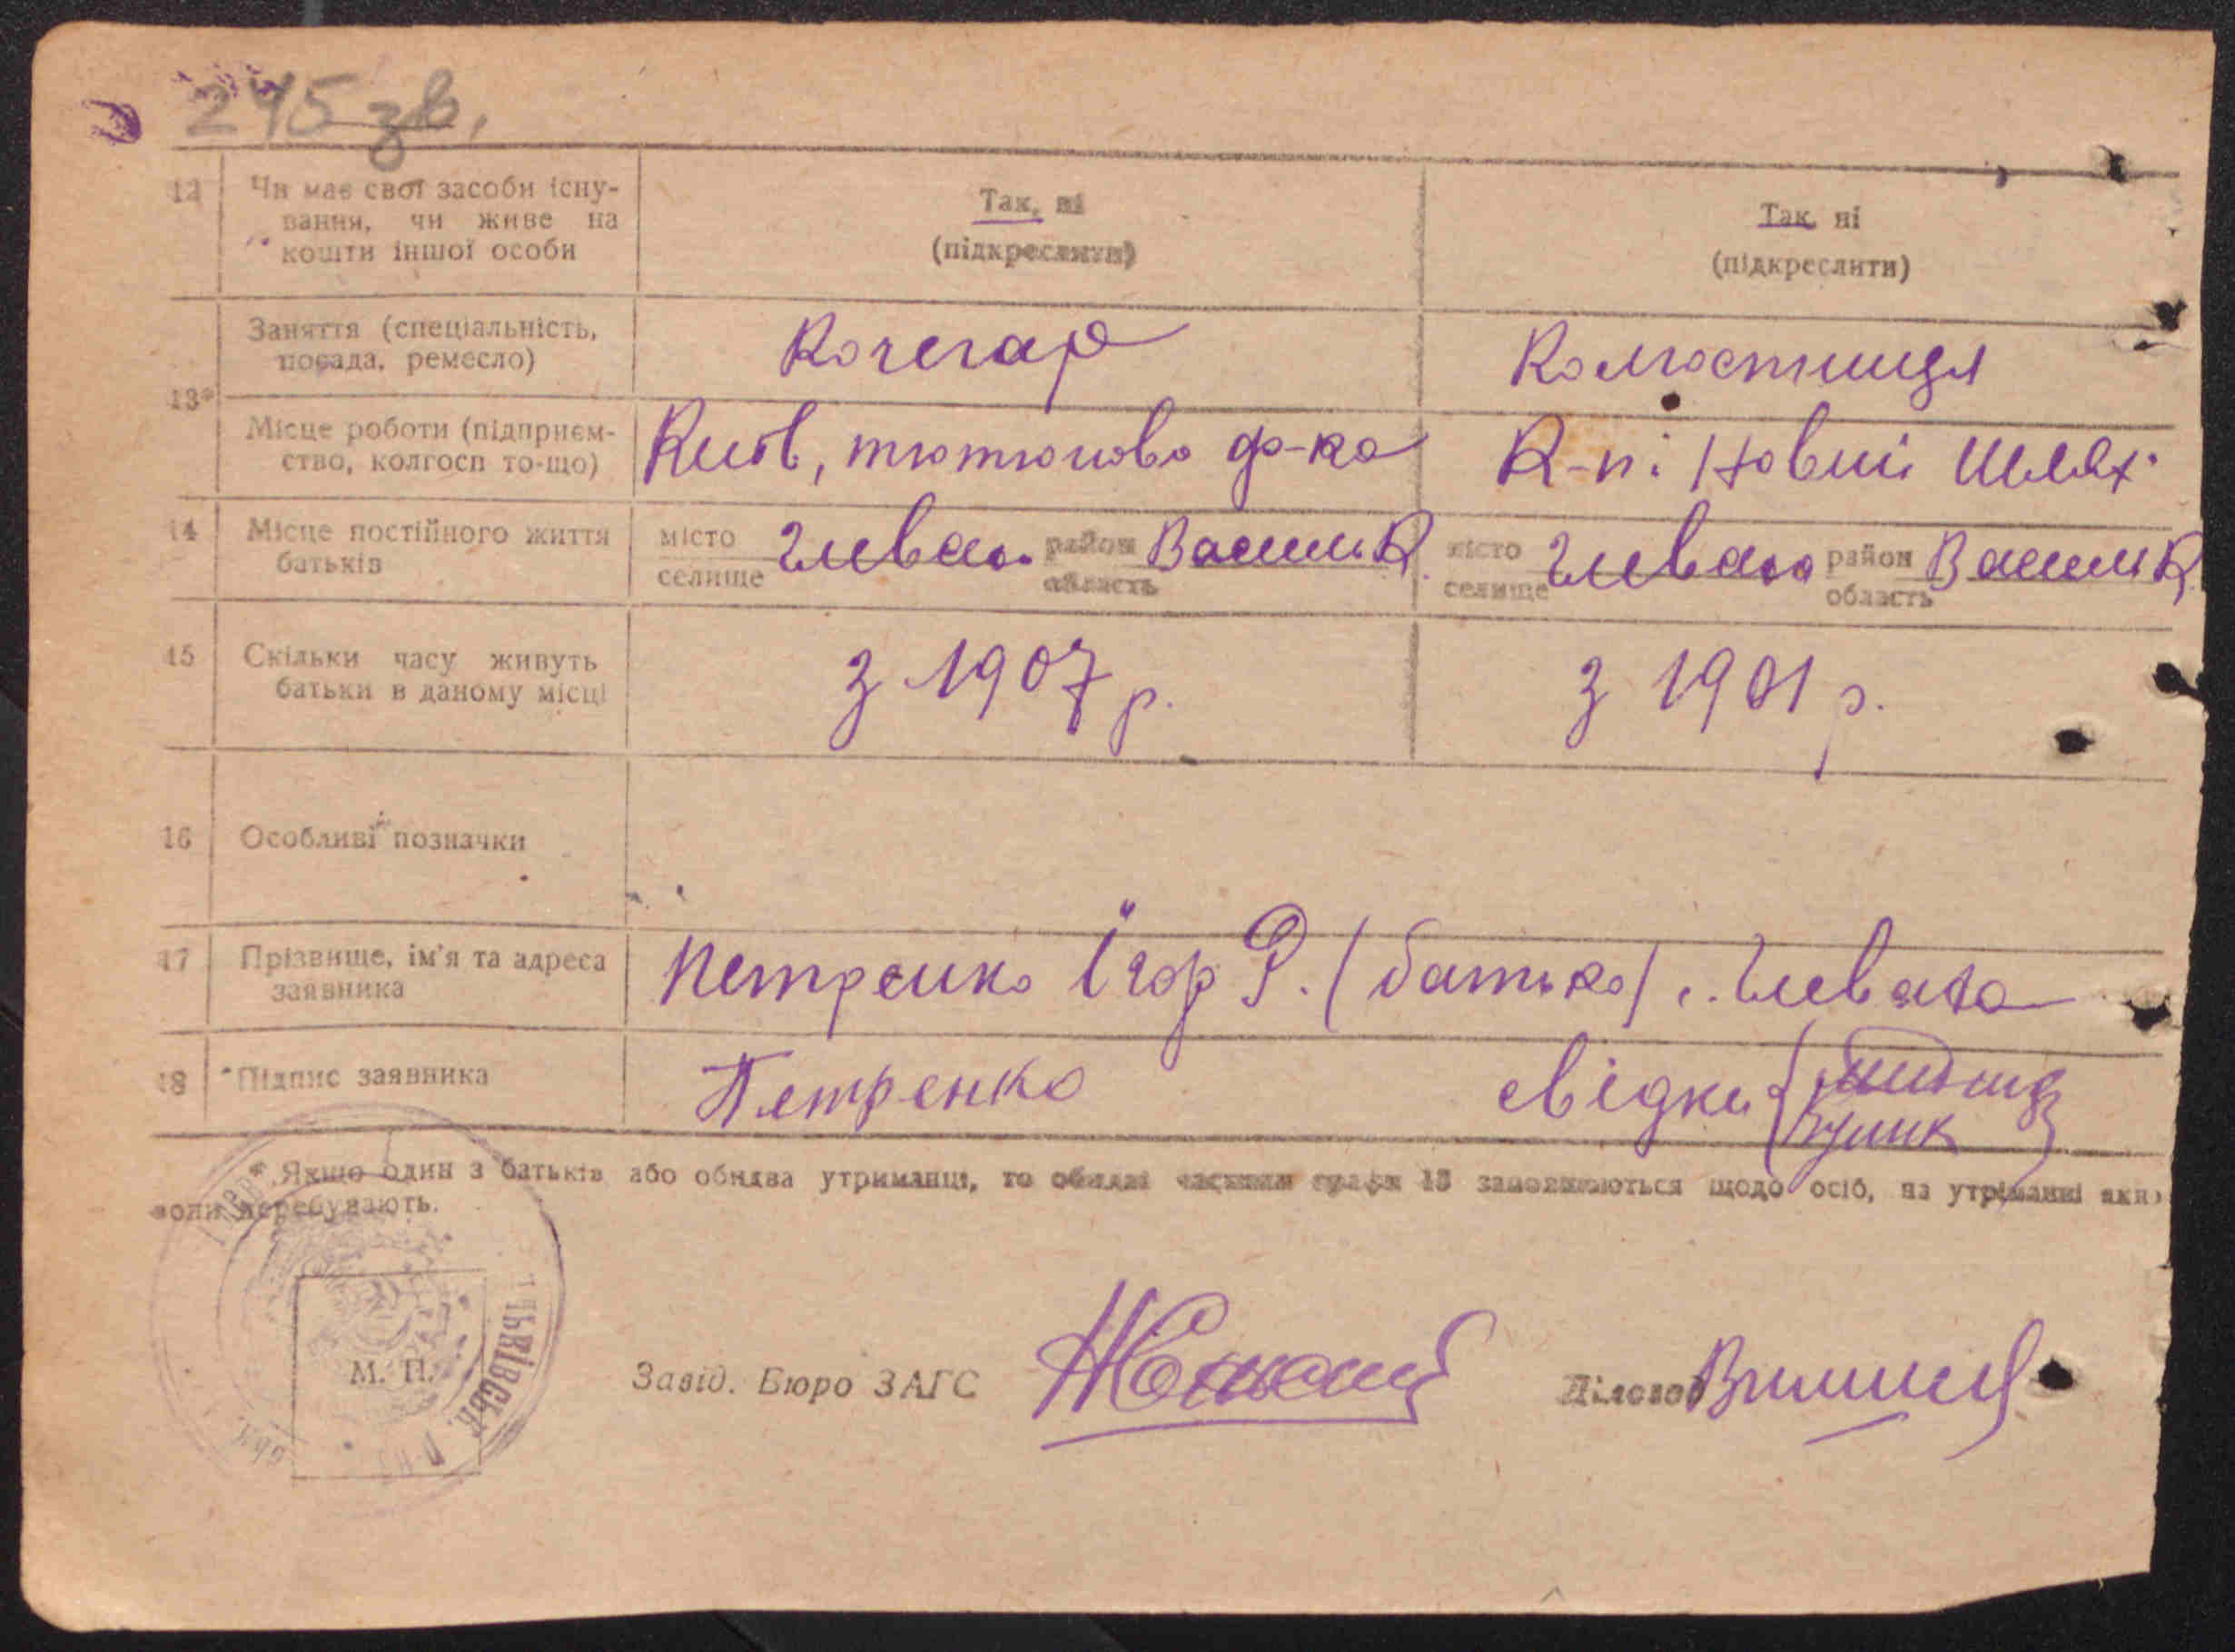 245 зв.
12 Чи має свої засоби існу-
вання, чи живе на
кошти іншої особи
Так, ні
(підкреслити)
Так, ні
(підкреслити)
13*
Заняття (спеціальність,
посада, ремесло)
Кочегар
Колгоспниця
Місце роботи (підприєм-
ство, колгосп то-що)
Київ, тютюнова ф-ка
К-п: Новий Шлях
14 Місце постійного життя
батьків
місто
селище
Глеваха
район
область
Васильк.
місто
селище
Глеваха
район
область
Васильк
15 Скільки часу живуть
батьки в даному місці
з 1907 р.
з 1901 р.
16 Особливі позначки
17 Прізвище, ім'я та адреса
заявника
Петренко Ігор Р. (батько) с. Глеваха
18 Підпис заявника
Петренко
свідки
* Якщо один з батьків або обидва утриманці, то обидві частини графи 13 заповнюються щодо осіб, на утриманні яких
вони перебувають.
М. П.
Завід. Бюро ЗАГС
Діловод